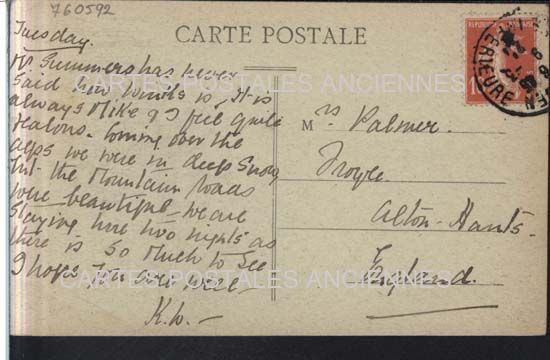 760592
Tuesday.
CARTE POSTALE
Mr Summers has never
said how Winnis is, It is
always Mike & I feel quite
jealous. Coming over the
alps we were in deep snow
but the Mountain roads
were beautiful we are
staying here two nights as
there is so much to see
I hope you are well —
K.W. —
Mrs Palmer.
Froyle
Alton - Hants -
England.
CARTES POSTALES ANCIENNES
CARTES POSTALES ANCIENNES